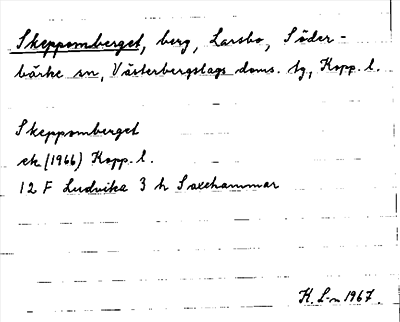 Skeppomberget, berg, Larsbo, Söder-
bärke sn, Västerbergslags doms. tg, Kopp. l.
Skeppomberget
ek (1966) Kopp. l.
12 F Ludvika 3 h Saxehammar
H. L-n 1967.